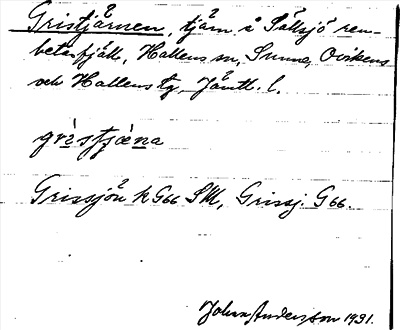 Gristjärnen, tjärn å Sällsjö ren-
betesfjäll, Hallens sn, Sunne, Ovikens
och Hallens tg, Jämtl. l.
Grissjön k G66 SW, Grissj. G66.
Johan Andersson 1931.